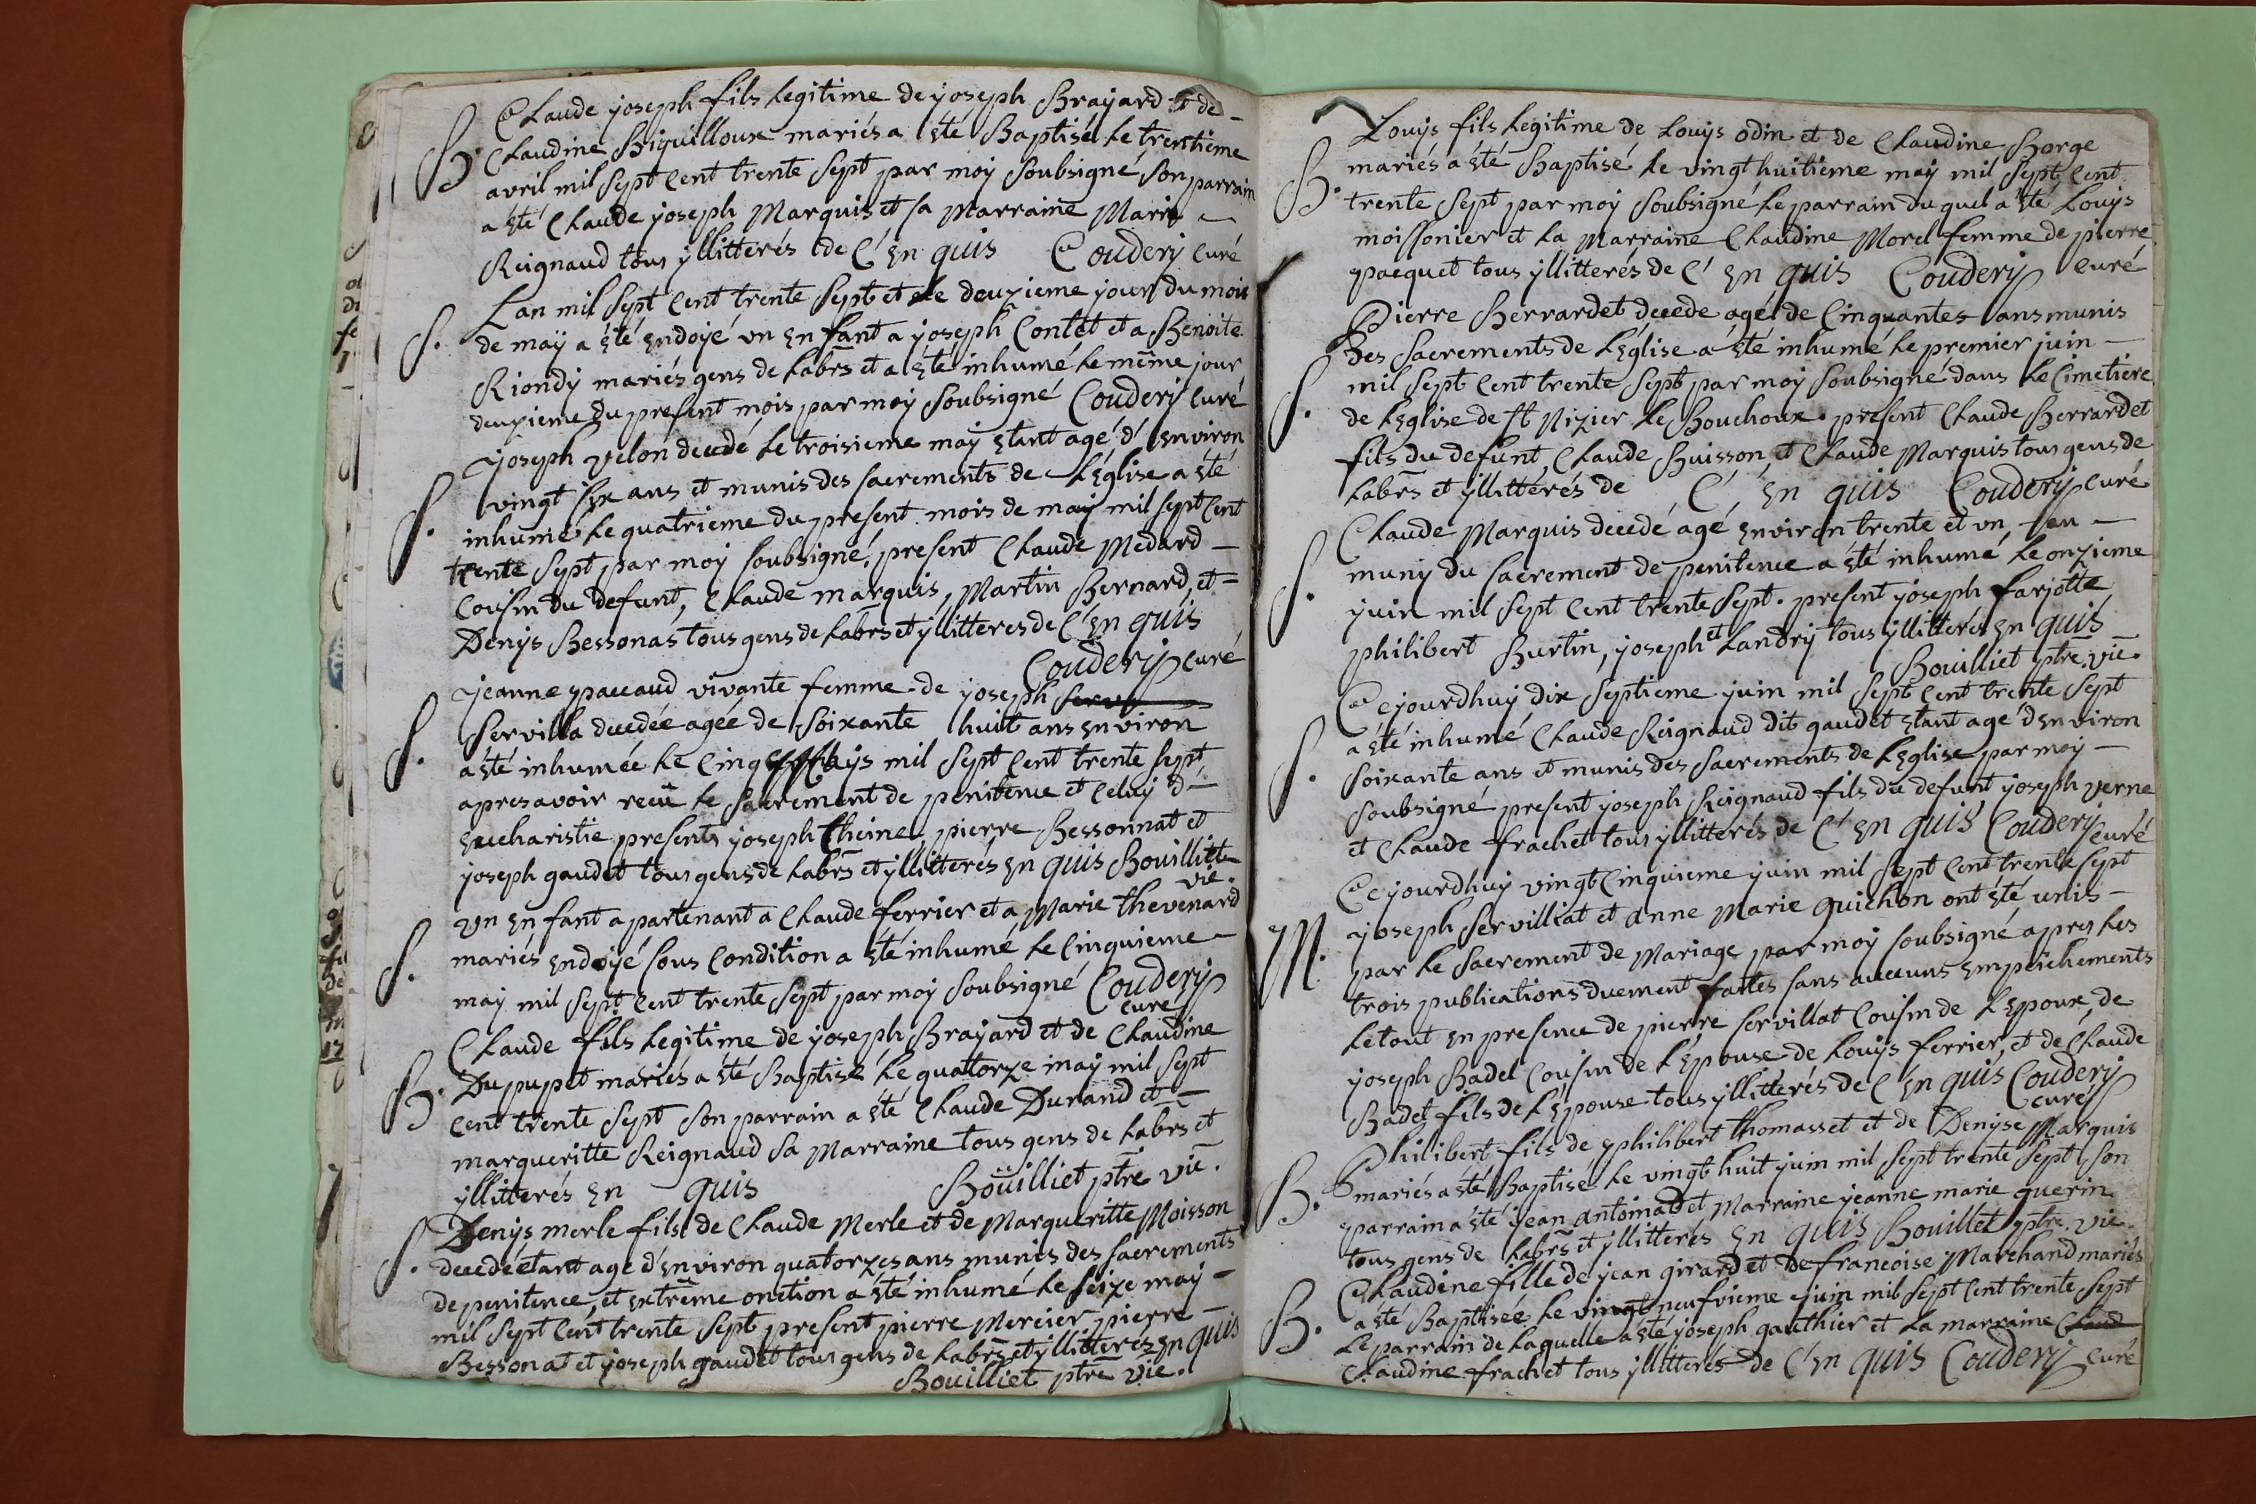 Claude joseph fils legitime de joseph Brayard et de
B. Claudine Biguilloux mariés a été Baptisé le trentième
avril mil sept cent trente sept par moy soubsigné son parrain
a été Claude joseph Marquis et sa Marraine Marie
Reignaud tous yllitterés de C' En quis Coudery curé
Lan mil sept cent trente sept et le deuxieme jour du mois
S. de may a été Endoyé un Enfant a joseph Contet et a Benoite
Riondy mariés gens de labrs et a été inhumé le même jour
deuxieme du present mois par moy soubsigné Coudery curé
joseph velon decedé le troisieme may étant agé d'Environ
S. vingt six ans et munis des sacrements de l'Eglise a été
inhumé le quatrieme du present mois de may mil sept cent
trente sept par moy soubsigné, present Claude Medard
Cousin du defunt, Claude marquis, Martin Bernard, et
Denys Bessonas tous gens de labrs et yllitteres de C'En quis
Coudery curé
jeanne paccaud vivante femme de joseph
S. Servilla decedée agée de soixante huit ans environ
a été inhumée le cinq mays mil sept cent trente sept
apres avoir recü le sacrement de penitence et celuy d'
Eucharistie presents joseph theine, pierre Bessonnat et
joseph gaudet tous gens de labrs et yllitterés En quis Bouilliet
vic.
un Enfant apartenant a Claude ferrier et a Marie thevenard
S. mariés Endoyé sous condition a été inhumé le cinquieme
may mil sept cent trente sept par moy soubsigné Coudery
curé
Claude fils legitime de joseph Brayard et de Claudine
B. Dupupet mariés a été Baptisé le quatorze may mil sept
cent trente sept son parrain a été Claude Durand et
margueritte Reignaud sa Marraine tous gens de labrs et
yllitterés En quis Boüilliet ptre vic.
Denys merle fils de Claude Merle et de Margueritte Moisson
S. decedé étant agé d'Environ quatorzes ans munis des sacrements
de penitence, et extrême onction a été inhumé le seize may
mil sept cent trente sept present pierre Mercier, pierre
Bessonat et joseph gaudet tous gens de labrs et yllitteres En quis
Bouilliet ptre vic.
Louys fils legitime de Louys odin et de Claudine Borge
B. mariés a été Baptisé le vingt huitieme may mil sept cent
trente sept par moy soubsigné le parrain du quel a été Louys
moissonier et la Marraine Claudine Morel femme de pierre
pacquet tous yllitterés de C' En quis Coudery curé
Pierre Berrardet decede agé de Cinquantes ans munis
Des sacrements de l'Eglise a été inhumé le premier juin
S. mil sept cent trente sept par moy soubsigné dans le Cimetiere
de l'Eglise de st Nizier le Bouchoux. present Claude Berrardet
fils du defunt, Claude Buisson, et Claude Marquis tous gens de
labrs et yllitterés de C' En quis Coudery curé
Claude Marquis decedé agé environ trente et un an
S. muny du sacrement de penitence a été inhumé le onzieme
juin mil sept cent trente sept. present joseph farjotte
philibert Burtin, joseph et Landry tous yllitterés En quis
Bouilliet ptre vic.
Ce jourdhuy dix septieme juin mil sept cent trente sept
a été inhumé Claude Reignaud dit gaudet étant agé d'Environ
S. soixante ans et munis des sacrements de l'Eglise par moy
soubsigné present joseph Reignaud fils du defunt joseph verne
et Claude frachet tous yllitterés de C' En quis Coudery curé
Ce jourdhuy vingt cinquieme juin mil sept cent trente sept
joseph servilliat et anne Marie guichon ont été unis
M. par le sacrement de Mariage par moy soubsigné apres les
trois publications duement faites sans aucuns Empêchements
le tout en presence de pierre servillat Cousin de l'Epoux, de
joseph Badel cousin de l'Epouse de Louys ferrier, et de Claude
Badet fils de l'Epouse tous yllitterés de C'En quis Coudery
curé
Philibert fils de philibert thomasset et de Denyse Marquis
B. mariés a été Baptisé le vingt huit juin mil sept trente sept son
parrain a été jean antoinat et Marraine jeanne marie guerin
tous gens de labrs et yllitterés En quis Bouillet ptre. vic.
Claudine fille de jean girard et De francoise Marchand mariés
B. a été Baptisée le vingt neufvieme juin mil sept cent trente sept
le parrain de laquelle a été joseph gauthier et la marraine Claud
Claudine frachet tous yllitterés de C'En quis Coudery curé